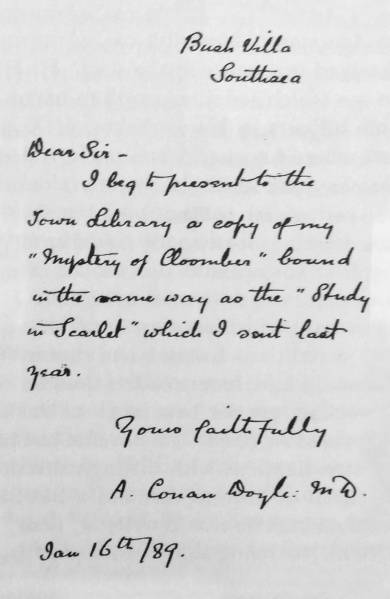 Bush Villa
Southsea
Dear Sir -
I beg to present to the
Town Library a copy of my
"Mystery of Cloomber" bound
in the same way as the "Study
in Scarlet" which I sent last
year.
Yours faithfully
A. Conan Doyle. M.D.
Jan 16th/89.